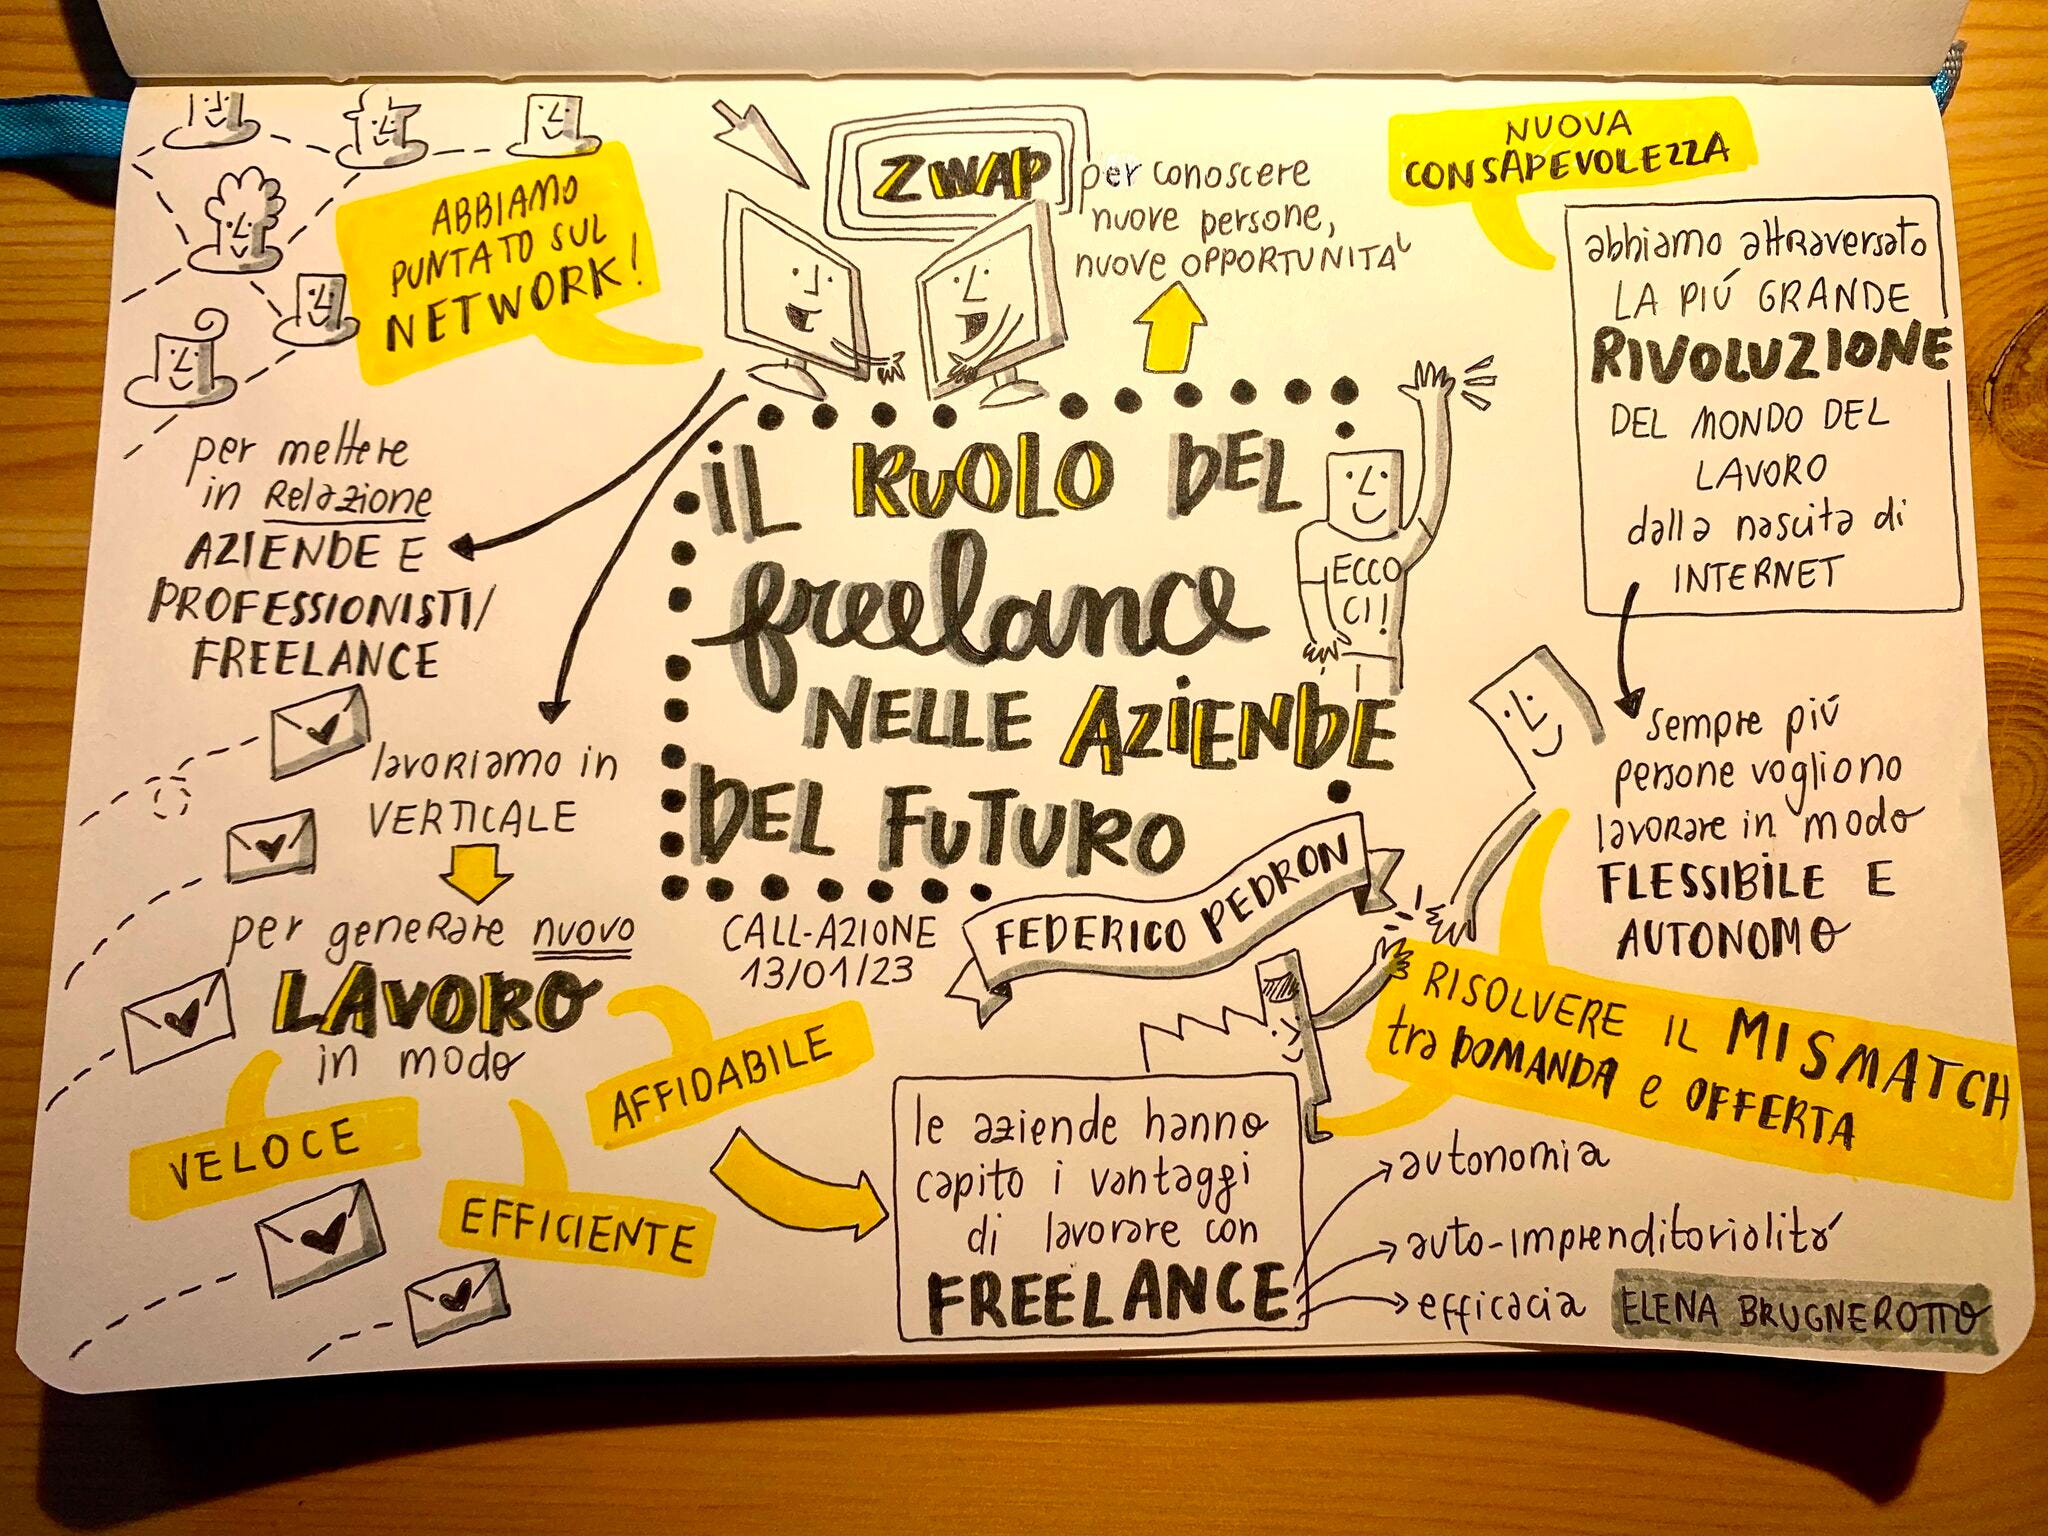 ABBIAMO
PUNTATO SUL
NETWORK!
ZWAP
per conoscere
nuove persone,
nuove OPPORTUNITA'
NUOVA
CONSAPEVOLEZZA
abbiamo attraversato
LA PIÚ GRANDE
RIVOLUZIONE
DEL MONDO DEL
LAVORO
dalla nascita di
INTERNET
per mettere
in Relazione
AZIENDE E
PROFESSIONISTI/
FREELANCE
IL RUOLO DEL
freelance
NELLE AZIENDE
DEL FUTURO
ECCO
CI!
sempre piú
persone vogliono
lavorare in modo
FLESSIBILE E
AUTONOMO
lavoriamo in
VERTICALE
per generare nuovo
LAVORO
in modo
VELOCE
EFFICIENTE
AFFIDABILE
CALL-AZIONE
13/01/23
FEDERICO PEDRON
RISOLVERE IL MISMATCH
tra DOMANDA e OFFERTA
le aziende hanno
capito i vantaggi
di lavorare con
FREELANCE
autonomia
auto-imprenditorialitá
efficacia
ELENA BRUGNEROTTO